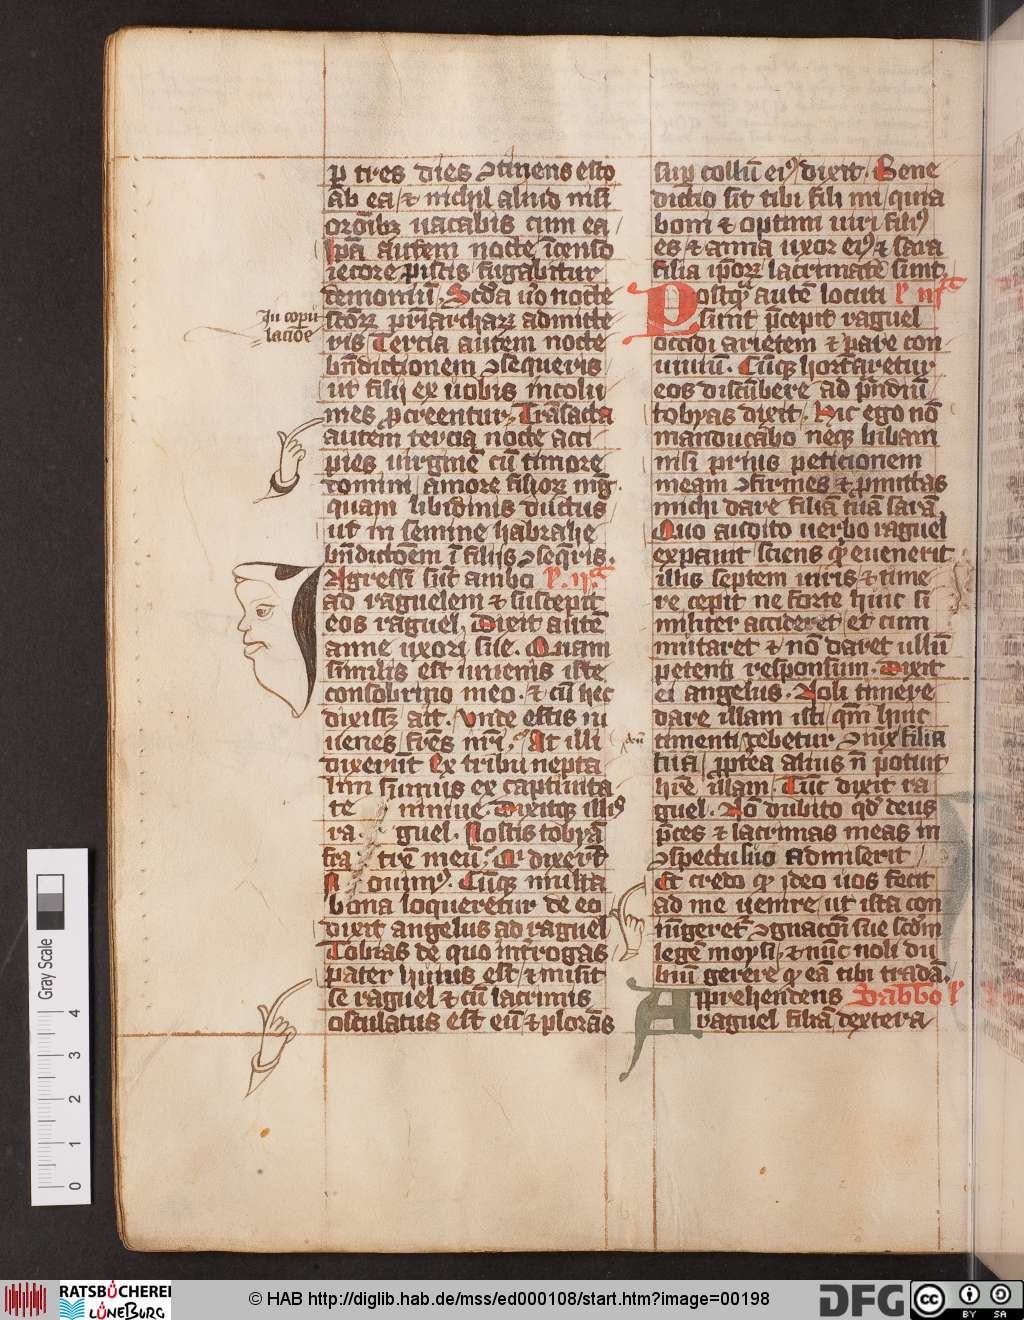 p̲ tres dies ꝯtinens esto
ab ea / ⁊ nichil aliud nisi
or̄oib⁊ uacabis cum ea
Ip̄a autem nocte īcenso
iecore piscis fugabitur
demoniū · Scd̄a u͛o nocte
In copu
sc̄or⁊ pr̄iarchar⁊ admitte
lac̄ioē
ris Tercia autem nocte
bn̄dictionem ꝯsequeris
ut filij ex uobis incolu
mes ꝓcreentur · Trāsacta
autem tercia nocte acci
pies uirginē cū timore
domini amore filior⁊ mg̅
quam libidinis ductus
ut in semine habrahe
bn̄dictōem ī filijs ꝯseq̄ris ·
Agressi sūt ambo l̅ · ij ·ᶜᵃ
ad raguelem ⁊ suscepit
eos raguel / Dixit autē
anne uxori sue · Quam
similis est iuuenis iste
consobrino meo · ⁊ cū hec
dixiss⁊ ait · Vnde estis iu
uenes fr̄es nr̄i · At illi
dixerūt Ex tribu nepta
lim sumus ex captiuita
te niniue · Dixitqꝫ illis
ra · guel · Nostis tobyā
fra · trē meū · Qⁱ dixer̄t
Nouimꝰ · Cūqꝫ multa
bona loqueretur de eo
dixit angelus ad raguel
Tobias de quo int̄rogas
pater huius est / ⁊ misit
se raguel ⁊ cū lacrimis
osculatus est eū ⁊ plorās
sup̲ collū eiꝰ dixit · Bene
dictio sit tibi fili mi / quia
boni ⁊ optimi uiri filiꝰ
es ⁊ anna uxor eiꝰ ⁊ sara
filia ip̄or⁊ lacrimatē sunt
Postqᵃ autē locuti l̅ iijᶜᵃ
sunt p̄cepit raguel
occidi arietem ⁊ p̲are con
uiuiū · Cūqꝫ hortaretur
eos discūbere ad p̄ndiū
tobyas dixit · Hic ego nō
manducabo neqꝫ bibam
nisi prius peticionem
meam ꝯfirmes ⁊ ꝓmittas
michi dare filiā tuā sarā
Quo audito uerbo raguel
expauit sciens qꝫ euenerit
illis septem uiris / ⁊ time
re cepit ne forte huic si
militer accideret / et cum
mutaret ⁊ nō daret ullū
petenti responsum · Dixit
ei angelus · Noli timere
dare illam isti qm̄ huic
dm̄
timenti debetur ꝯiux filia
tua / ꝓpt̄ea alius n̄ potuit
hr̄e illam · Tūc dixit ra
guel · Nō dubito qd̄ deus
p̄ces ⁊ lacrimas meas in
ꝯspectu suo admiserit
Et credo qꝫ ideo uos fecit
ad me uenire ut ista con
iūgeret͛ ꝯgnatōni sue scd̄m
legē moysi / ⁊ nūc noli du
biū gerere qꝫ eā tibi tradā ·
Apprehendens Sabb̄o l̅
raguel filiā dextera
Gray Scale
0 1 2 3 4
RATSBÜCHEREI
LÜNEBURG
© HAB http://diglib.hab.de/mss/ed000108/start.htm?image=00198
DFG
cc
BY SA